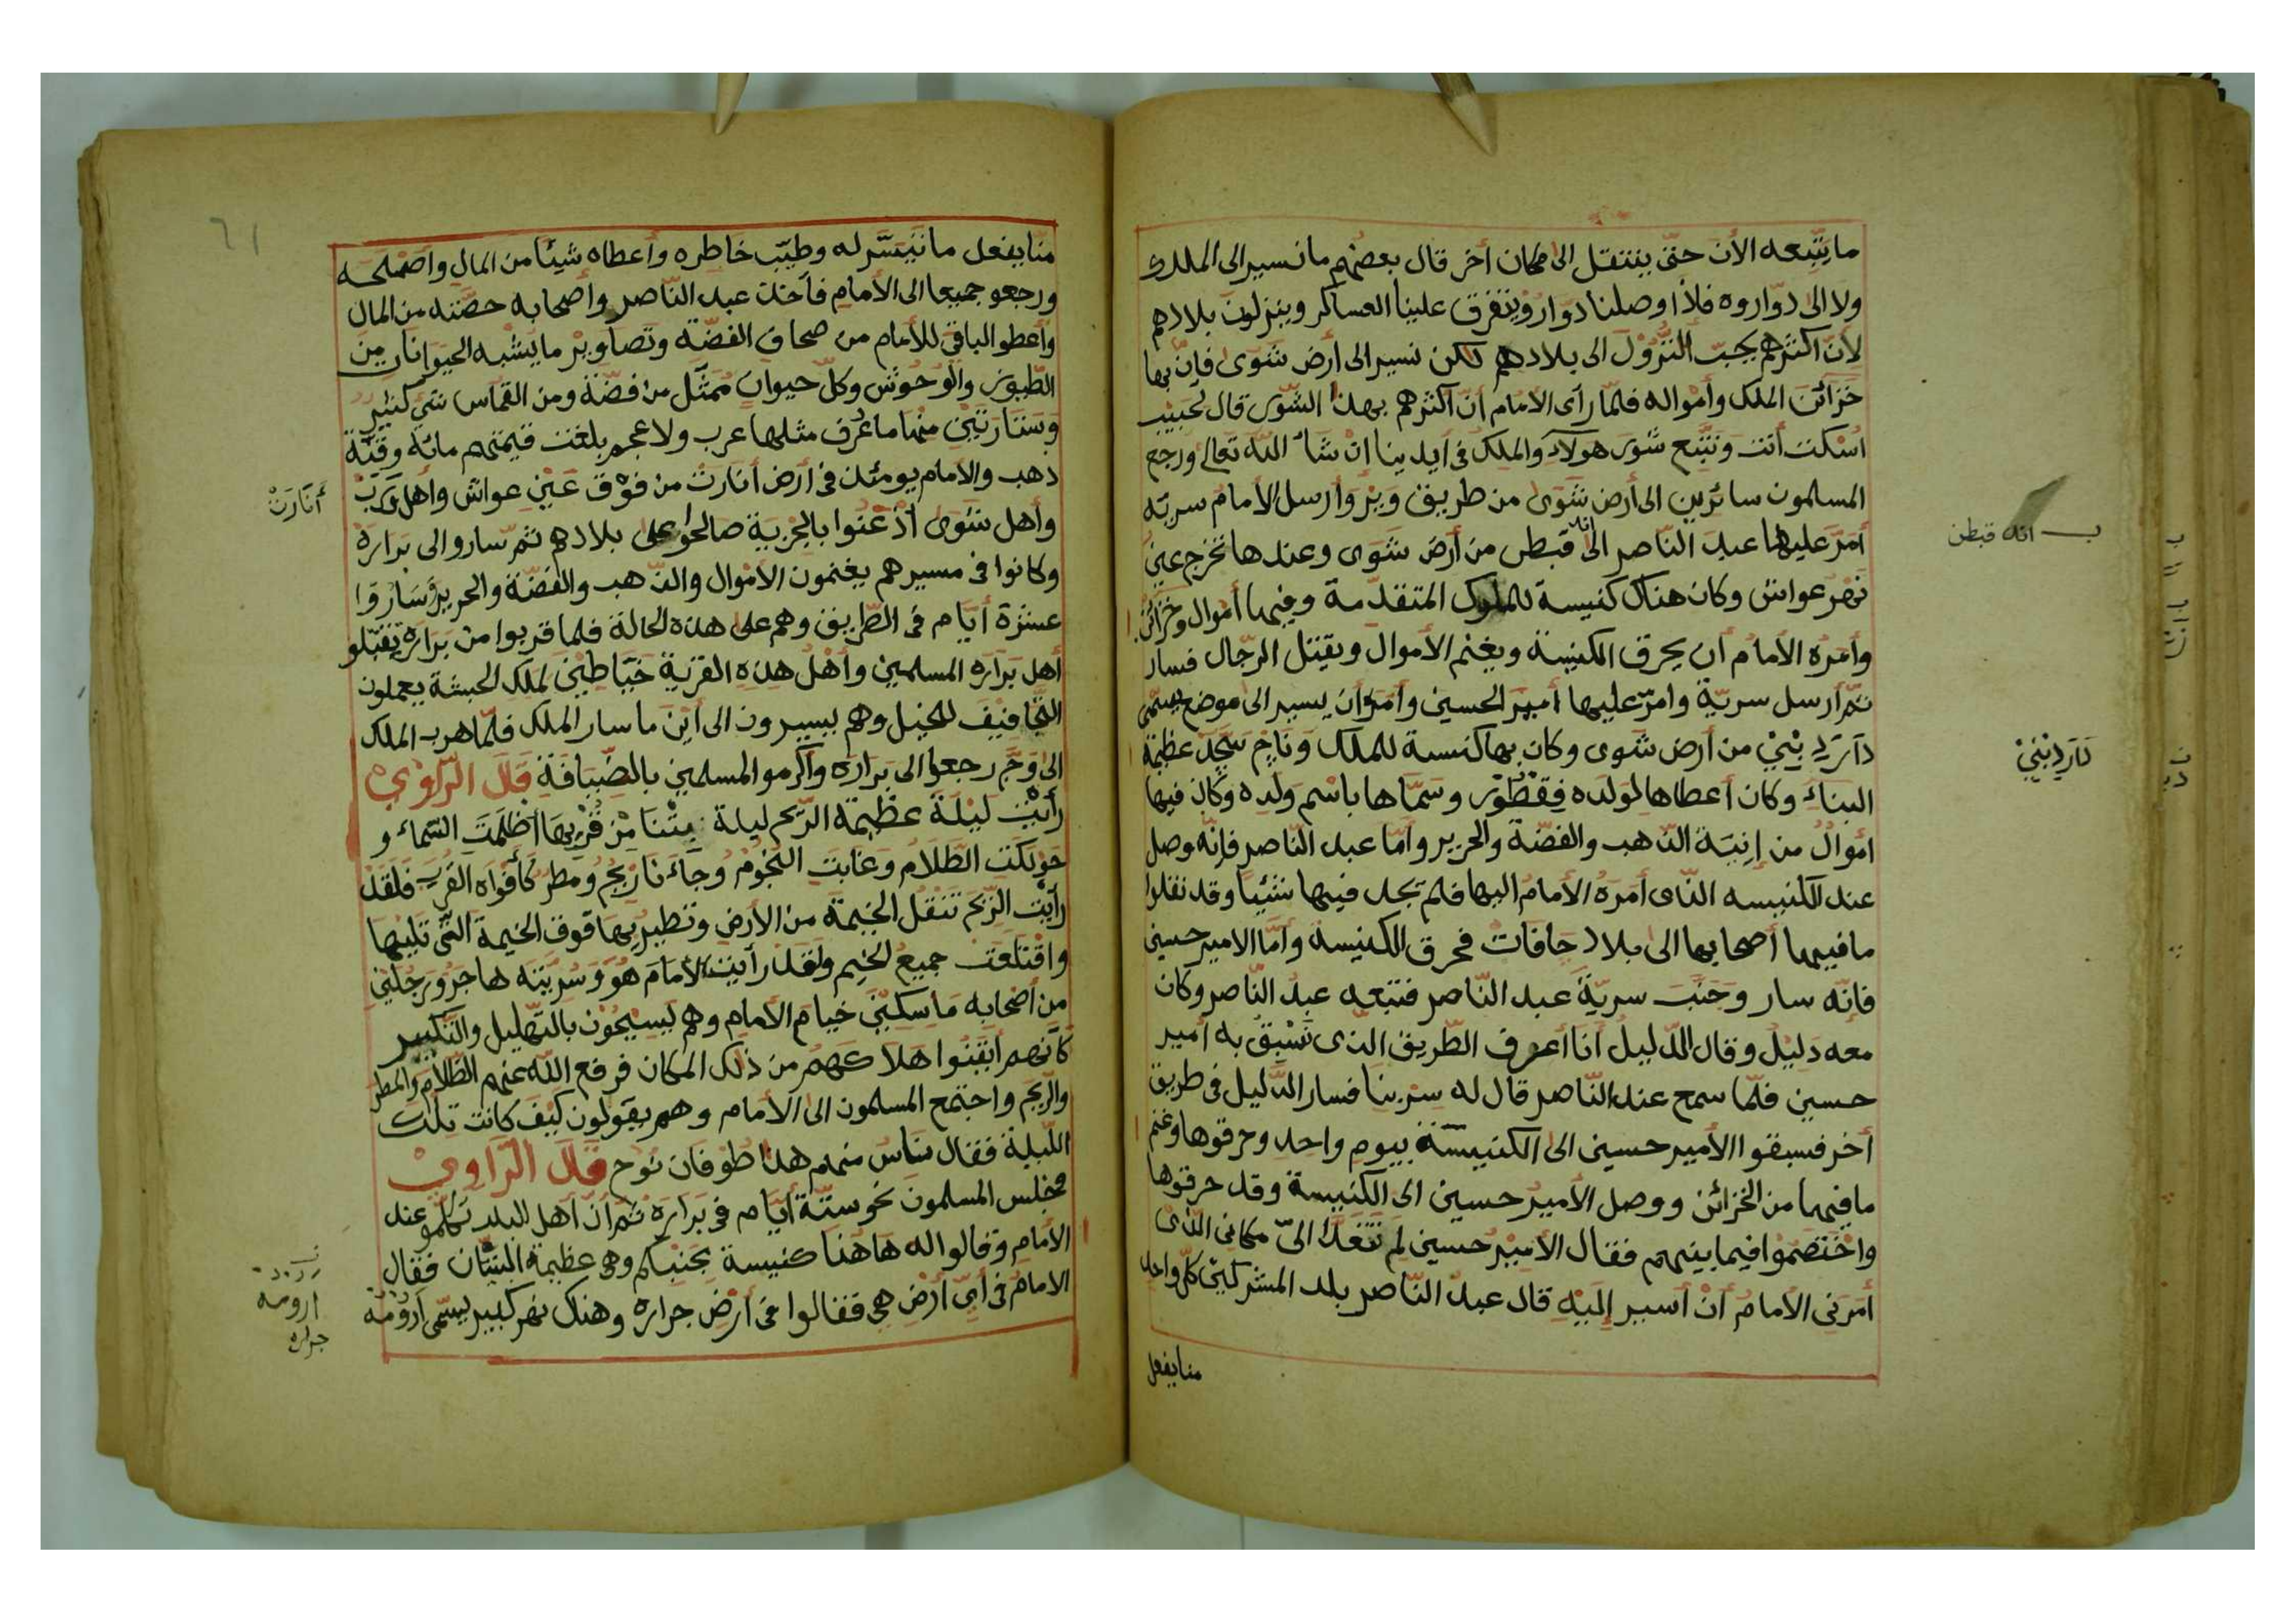 ما يتّبعه الأن حتّى ينتقل الى مكان أخر قال بعضهم ما نسير الى الملك
ولا الى دوّاروه فلأ اوصلنا دوّاروه يتفرق علينا العساكر وينزلون بلادهم
لأنّ اكثرهم يحبّ النّزول الى بلادهم لكن نسير الى أرض شَوَى فإنّ بها
خزائن الملك وأمواله فلمّا رأى الأمام أنّ اكثرهم بهذا الشّوى قال لحبيب
اسكت أنت ونتّبع شَوى هولاد والملك فى أيدينا ان شاء اللّه تعالى ورجع
المسلمون سائرين الى أرض شَوَى من طريق وَيْز وأرسل الأمام سريّه
أمّر عليها عبد النّاصر الى انه قبطن من أرض شَوى وعندها تخرج عين
نَهْر عواش وكان هناك كنيسة للملوك المتقدّمة وفيها أموال وخزائن
وأمره الأمام أن يحرق الكنيسة ويغنم الأموال ويقتل الرّجال فسار
ثمّ أرسل سريّة وامّر عليها أمير الحسين وأمره أن يسير الى موضع يسمّى
دَارَدِ بْنِيْ من أرض شَوى وكان بها كنسة للملك وناج سَجَد عظيمة
البناء وكان أعطاها لولده فِقْطُوْر وسمّاها باسْم ولده وكان فيها
اموالٌ من إنية الذهب والفضّة والحرير وأمّا عبد النّاصر فإنّه وصل
عند الكنيسه الّذى أمره الأمام اليها فلم تجد فيها شئيا وقد نقلوا
ما فيها أصحابها الى بلاد حافات فحرق الكنيسة وأمّا الامير حسين
فإنّه سار وجَنَبَ سريّة عبد النّاصر فتبعه عبدُ النّاصر وكان
معه دليل وقال الدّليل أنا أعرف الطّريق الذى تَسْبق به أمير
حسين فلمّا سمح عند النّاصر قال له سِرْ بنا فسار الدّليل فى طريق
أخر فسبقوا الأمير حسين الى الكنيسة بيوم واحد وحرقوها وغنم
ما فيها من الخزائن ووصل الأمير حسين الى الكنيسة وقد حرقوها
واختصموا فيما بينهم فقال الأمير حسين لم تتعدّا الىّ مكانى الذى
أمرنى الأمامُ أن أسير إليه قال عبد النّاصر بلد المشركين كلّ واحد
منا يفعل
انه قبطن
دَارَدِبْنِيْ
منّا يفعل ما تيسّر له وطيّب خاطره وأعطاه شيئا من المال وأصْلحه
ورجعو جميعا الى الأمام فأخذ عبد النّاصر وأصحابه حصّته من المال
وأعطو الباقى للأمام من صحاف الفضّة وتصاوير ما يشبه الحيوانات من
الطّيور والوحوش وكلّ حيوان ممثّل من فضّة ومن القماس شىء كثير
وستارتين منها ما عُرف مثلها عرب ولا عجم بلغت قيمتهم مائة وقيّة
ذهب والامام يومئذ فى أرض أنارت من فوْق عَين عواش وأهل وَرَبْ
وأهل شَوَى أذعَنوا بالجزية صالحوا على بلادهم ثمّ سارو الى برارة
وكانوا فى مسيرهم يغنمون الأموال والذّهب والفضّة والحرير وساروا
عشرة أيّام فى الطّريق وهم على هذه الحالة فلما قربوا من براره تقبّلو
أهل براره المسلمين وأهل هذه القرية خيّاطين لملك الحبشة يعملون
التّجافيف للخيل وهم يسيرون الى أين ما سار الملك فلمّا هرب الملك
الى وَجّ رجعوا الى براره وأكرمو المسلمين بالضّيافة قَالَ الرّاوِيْ
رأيت ليلة عظيمة الرّيح ليلة بتْنا مِن قُرْبِها أظلمت السّماء و
حولكت الظّلام وغابت النّجوم وجاءنا ريح ومطر كأفواه القرب فلقد
رأيت الرّيح تنقل الخيمة من الأرض وتطير بها فوق الخيمة التّى تليها
واقتلعت جميع الخيم ولقد رأيت الأمام هُوَ وَسُرّيَته هاجر ورجلين
من أصحابه ماسكين خيام الأمام وهم يسيحون بالتّهليل والتّكبير
كأنهم أيقنوا هلاكهم من ذلك المكان فرفع اللّه عنهم الظّلام والمطر
والرّيح واجتمع المسلمون الى الأمام وهم يقولون كيف كانت تلك
اللّيلة فقال ناس منهم هذا طوفان نوح قَالَ الرّاوِيْ
فجلس المسلمون نحو ستّة أيّام فى برارَه ثم أنّ أهل البلد تكلّمو عند
الأمام وقالوا له هَاهُنا كنيسة بجنبكم وهى عظيمة البنيّان فقال
الامام فى أىّ أرْض هى فقالوا فى أرْض جراره وهنك نهر كبير يسمّى أرُوْمَه
أَنَارَتْ
ارومه
جراره
٦١